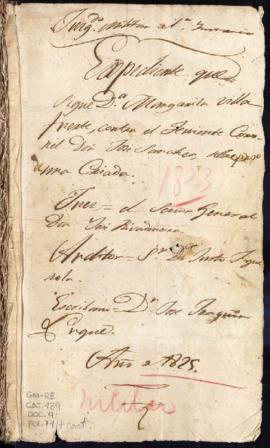 Juzgº militar
Expediente que
sigue Dª Margarita Villa
fuerte, contra el Teniente Coro
nel Don José Sanchez, sobre pago
de una Criada.
1823
Juez = el Señor General
Don José Rivadeneira
Auditor = Sr Dr Justo Figue
rola.
Escribano = Dn José Joaquin
Luque.
Año de 1825.
GM-RE
CAJ. 139
DOC. 9
FOL. 74
Militar